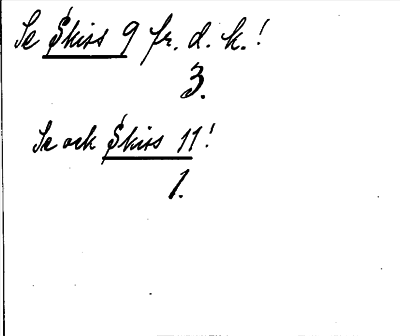 Se Skiss 9 fr. d. k.!
3.
Se ock Skiss 11!
1.